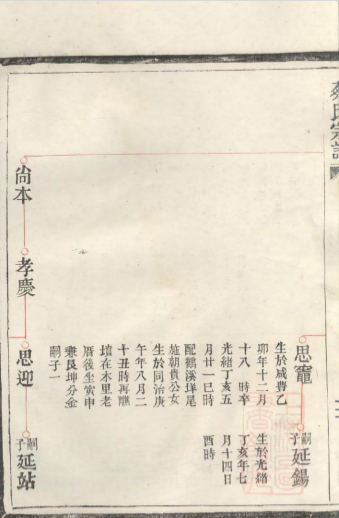 蔡氏宗譜
思竈
生於咸豐乙
卯年十二月
十八　時卒
光緒丁亥五
月廿一巳時
配鶴溪垟尾
施朝貴公女
生於同治庚
午年八月二
十丑時再醮
墳在木里老
厝後坐寅申
兼艮坤分金
嗣子一
嗣子延錫
生於光緒
丁亥年七
月十四日
酉時
尚本
孝慶
思迎
嗣子延站